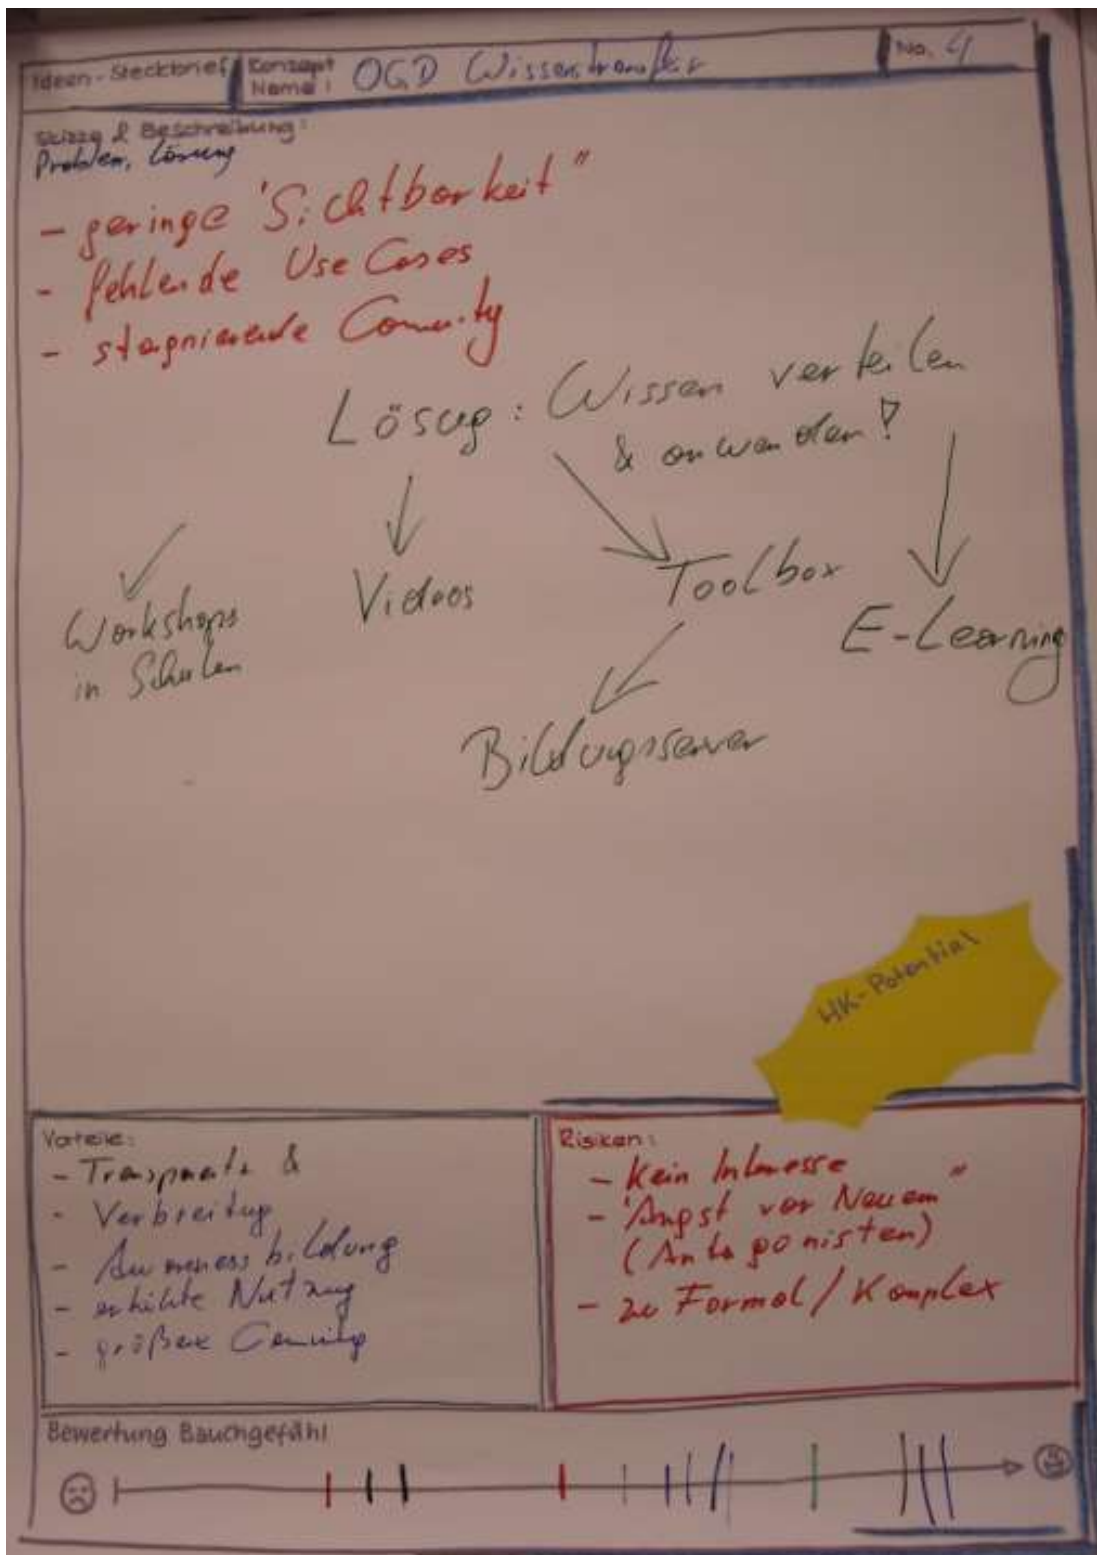 Ideen-Steckbrief
Konzept Name: OGD Wissenstransfer
No. 4
Skizze & Beschreibung:
Problem, Lösung
- geringe 'Sichtbarkeit"
- fehlende Use Cases
- stagnierende Comunity
Lösug: Wissen verteilen
& anwenden!
Workshops
in Schulen
Videos
Toolbox
E-Learning
Bildugsserver
4K-Potential
Vorteile:
- Transparentz &
- Verbreitug
- Awareness bildung
- erhöhte Nutzug
- größere Comunity
Risiken:
- Kein Interesse
- 'Angst vor Neuem"
(Antagonisten)
- zu Formal / Komplex
Bewertung Bauchgefühl